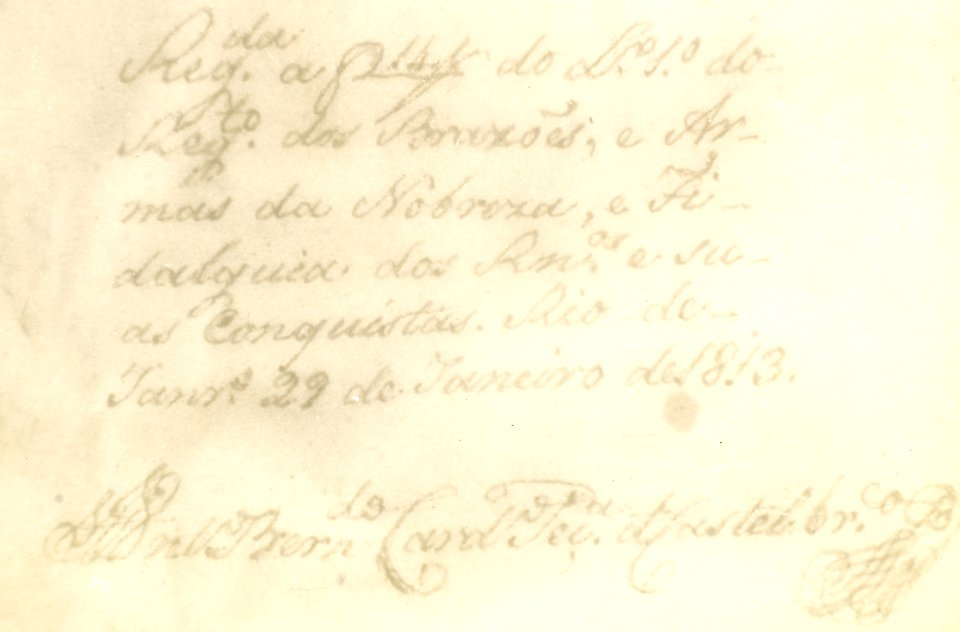 Reg.da a f 214 do L.º 1.º do
Reg.to dos Brazões, e Ar-
mas da Nobreza, e Fi-
dalguia dos Rn.os e su-
as Conquistas. Rio de-
Janr.º 29 de Janeiro de 1813.
Bern.do Card.º Teix.ª Castel br.co